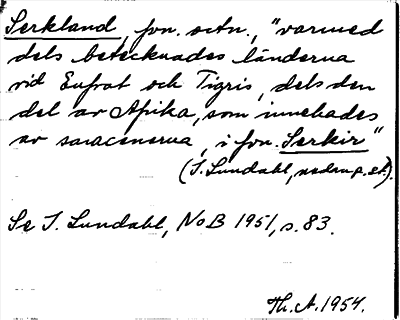 Serkland, fvn. ortn., "varmed
dels betecknades länderna
vid Eufrat och Tigris, dels den
del av Afrika, som innehades
av saracenerna, i fvn. Serkir"
(I. Lundahl, nedan a. st.).
Se I. Lundahl, NoB 1951, s. 83.
Th. A. 1954.